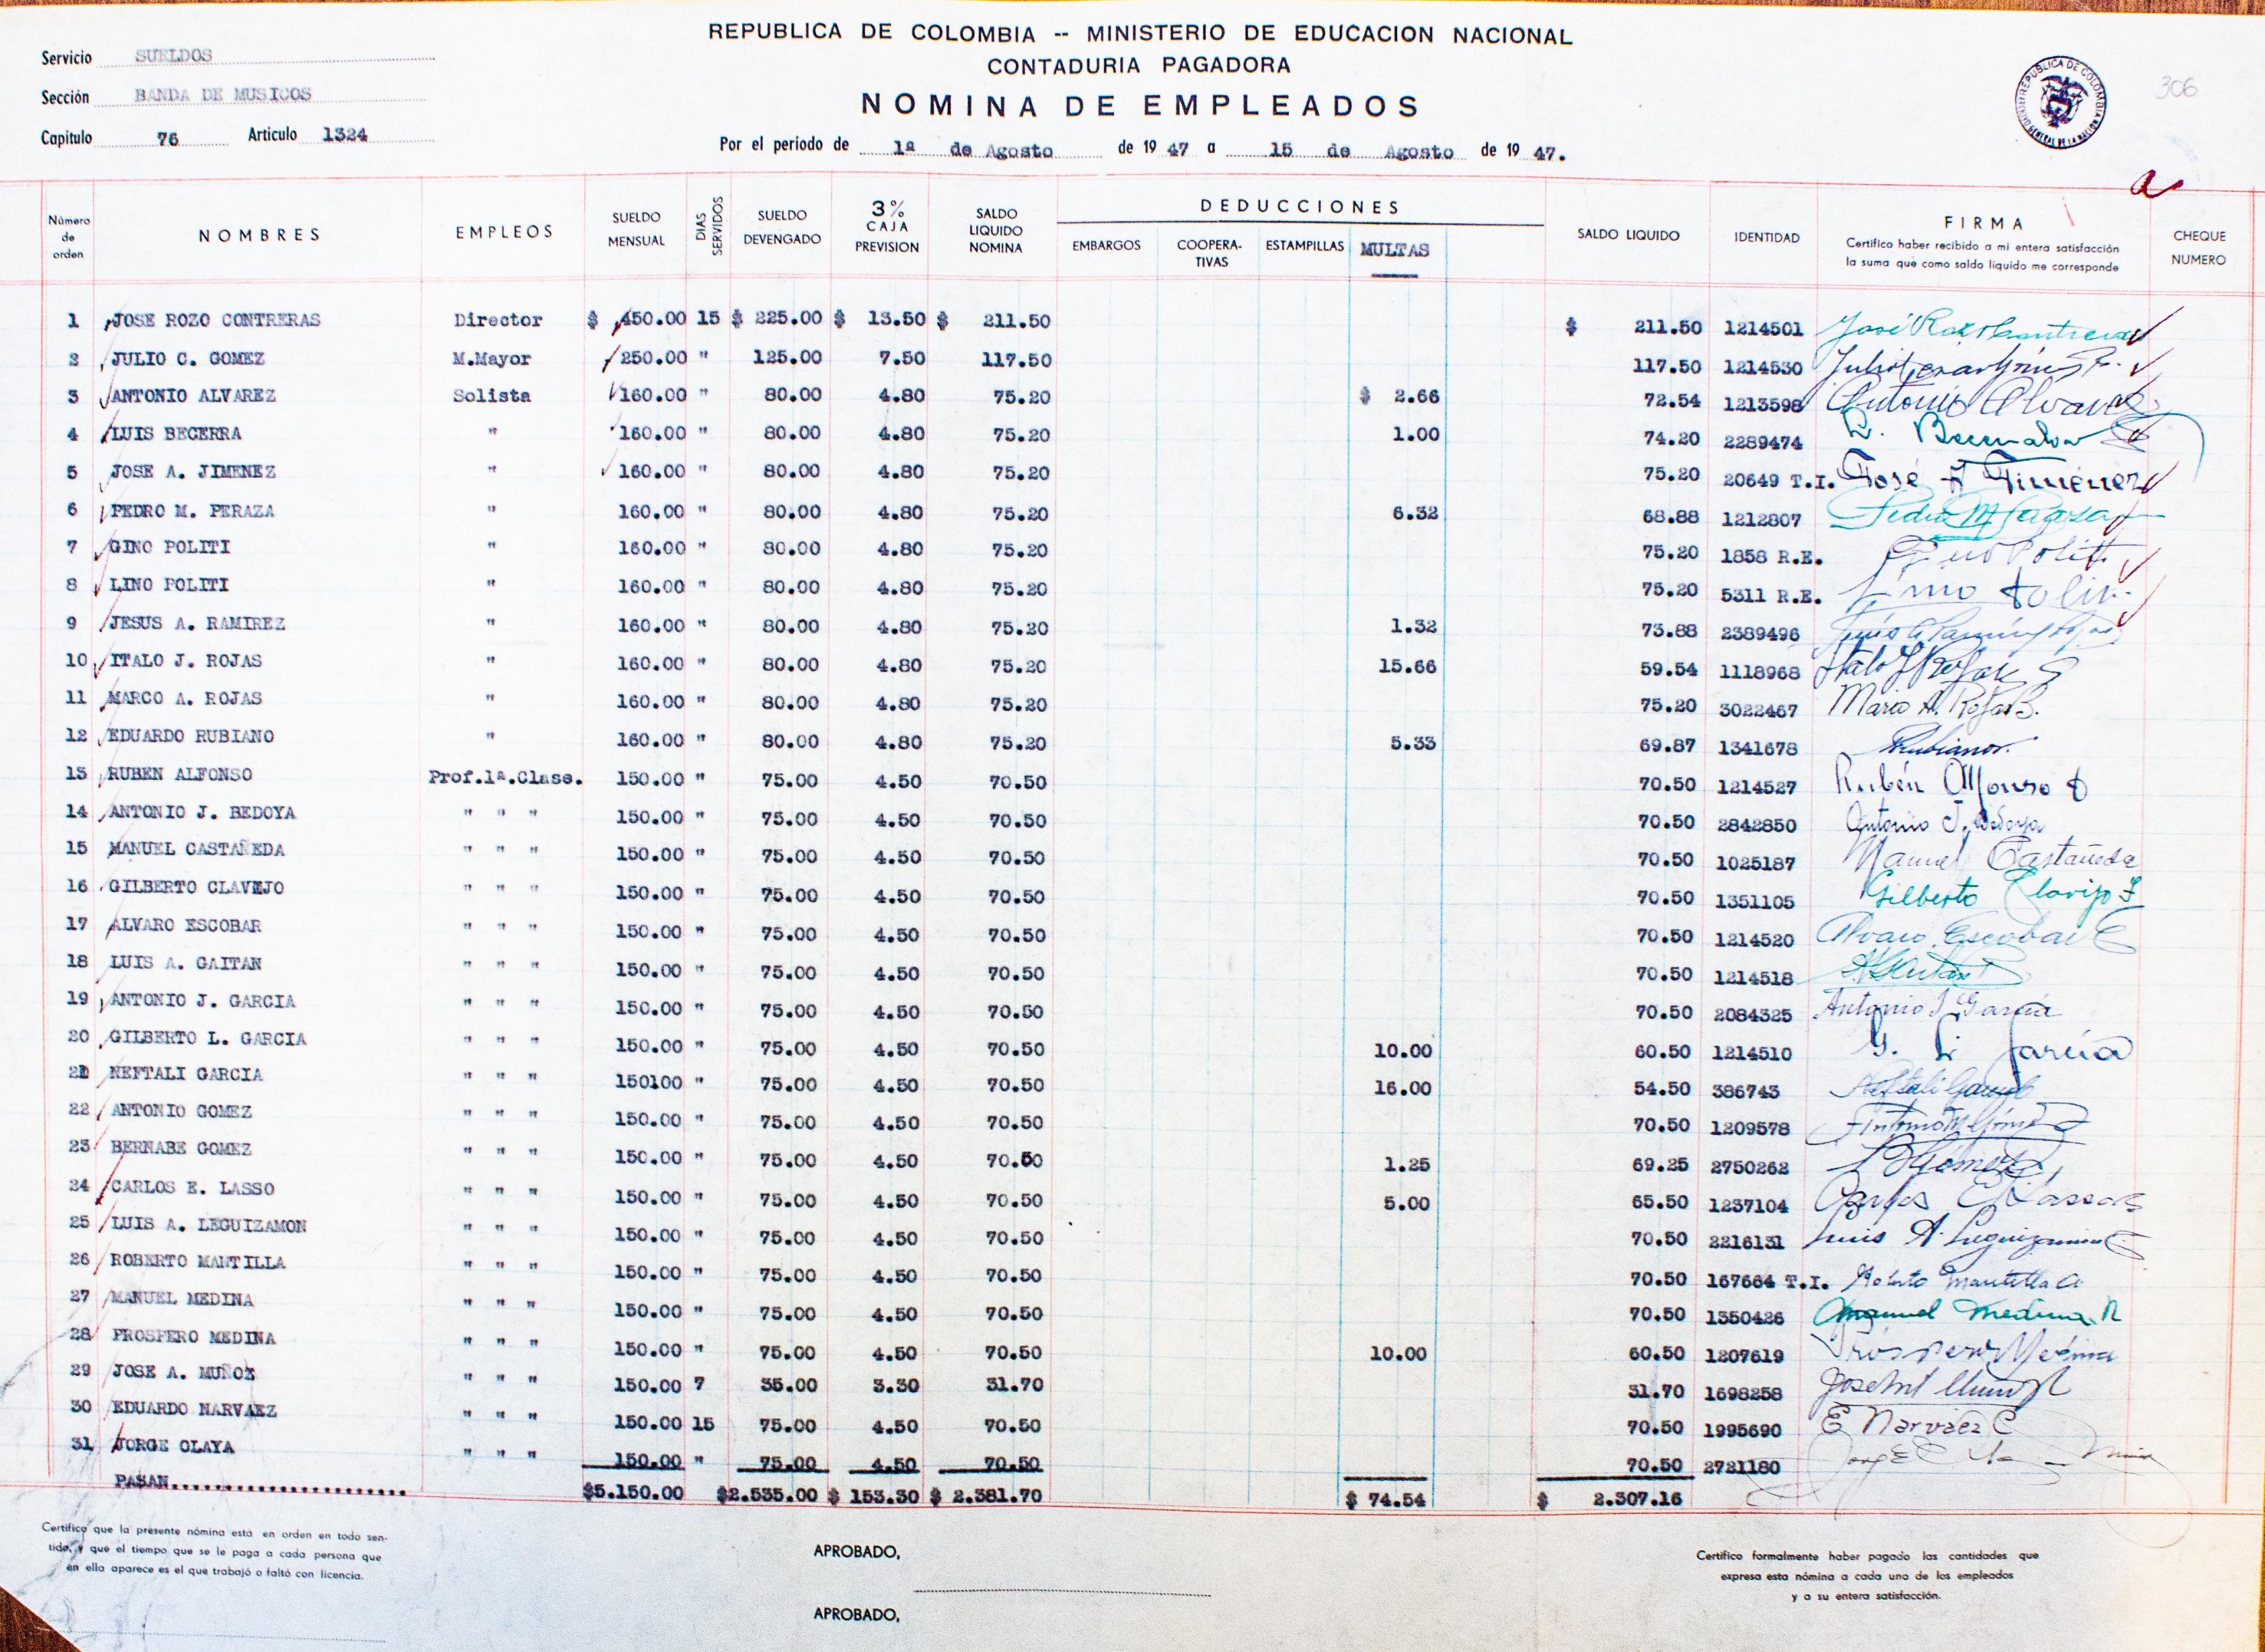 REPUBLICA DE COLOMBIA -- MINISTERIO DE EDUCACION NACIONAL
CONTADURIA PAGADORA
NOMINA DE EMPLEADOS
Servicio SUELDOS
Sección BANDA DE MUSICOS
Capítulo 76 Artículo 1324
Por el período de 1ª de Agosto de 19 47 a 15 de Agosto de 19 47.
306
Número de orden NOMBRES EMPLEOS SUELDO MENSUAL DIAS SERVIDOS SUELDO DEVENGADO 3% CAJA PREVISION SALDO LIQUIDO NOMINA DEDUCCIONES EMBARGOS COOPERA-TIVAS ESTAMPILLAS MULTAS SALDO LIQUIDO IDENTIDAD FIRMA Certifico haber recibido a mi entera satisfacción la suma que como saldo líquido me corresponde CHEQUE NUMERO
1 JOSE ROZO CONTRERAS Director $ 450.00 15 $ 225.00 $ 13.50 $ 211.50 $ 211.50 1214501
2 JULIO C. GOMEZ M.Mayor 250.00 " 125.00 7.50 117.50 117.50 1214530
3 ANTONIO ALVAREZ Solista 160.00 " 80.00 4.80 75.20 $ 2.66 72.54 1213598 Antonio Alvarez
4 LUIS BECERRA " 160.00 " 80.00 4.80 75.20 1.00 74.20 2289474
5 JOSE A. JIMENEZ " 160.00 " 80.00 4.80 75.20 75.20 20649 T.I. José A Jiménez
6 PEDRO M. PERAZA " 160.00 " 80.00 4.80 75.20 6.32 68.88 1212807 Pedro M Peraza
7 GINO POLITI " 160.00 " 80.00 4.80 75.20 75.20 1858 R.E. Gino Politi
8 LINO POLITI " 160.00 " 80.00 4.80 75.20 75.20 5311 R.E. Lino Politi
9 JESUS A. RAMIREZ " 160.00 " 80.00 4.80 75.20 1.32 73.88 2389496
10 ITALO J. ROJAS " 160.00 " 80.00 4.80 75.20 15.66 59.54 1118968 Italo J Rojas
11 MARCO A. ROJAS " 160.00 " 80.00 4.80 75.20 75.20 3022467 Marco A. Rojas B.
12 EDUARDO RUBIANO " 160.00 " 80.00 4.80 75.20 5.33 69.87 1341678
13 RUBEN ALFONSO Prof.1ª.Clase. 150.00 " 75.00 4.50 70.50 70.50 1214527 Rubén Alfonso
14 ANTONIO J. BEDOYA " " " 150.00 " 75.00 4.50 70.50 70.50 2842850 Antonio J. Bedoya
15 MANUEL CASTAÑEDA " " " 150.00 " 75.00 4.50 70.50 70.50 1025187 Manuel Castañeda
16 GILBERTO CLAVEJO " " " 150.00 " 75.00 4.50 70.50 70.50 1351105 Gilberto Clavijo F
17 ALVARO ESCOBAR " " " 150.00 " 75.00 4.50 70.50 70.50 1214520 Alvaro Escobar C
18 LUIS A. GAITAN " " " 150.00 " 75.00 4.50 70.50 70.50 1214518
19 ANTONIO J. GARCIA " " " 150.00 " 75.00 4.50 70.50 70.50 2084325 Antonio J Garcia
20 GILBERTO L. GARCIA " " " 150.00 " 75.00 4.50 70.50 10.00 60.50 1214510 G. L. García
21 NEFTALI GARCIA " " " 150100 " 75.00 4.50 70.50 16.00 54.50 386743
22 ANTONIO GOMEZ " " " 150.00 " 75.00 4.50 70.50 70.50 1209578
23 BERNABE GOMEZ " " " 150.00 " 75.00 4.50 70.50 1.25 69.25 2750262 B Gomez
24 CARLOS E. LASSO " " " 150.00 " 75.00 4.50 70.50 5.00 65.50 1237104
25 LUIS A. LEGUIZAMON " " " 150.00 " 75.00 4.50 70.50 70.50 2216131 Luis A. Leguizamon
26 ROBERTO MANTILLA " " " 150.00 " 75.00 4.50 70.50 70.50 167664 T.I. Roberto Mantilla
27 MANUEL MEDINA " " " 150.00 " 75.00 4.50 70.50 70.50 1350426 Manuel Medina R
28 PROSPERO MEDINA " " " 150.00 " 75.00 4.50 70.50 10.00 60.50 1207619 Prospero Medina
29 JOSE A. MUÑOZ " " " 150.00 7 35.00 3.30 31.70 31.70 1698258
30 EDUARDO NARVAEZ " " " 150.00 15 75.00 4.50 70.50 70.50 1995690 E Narváez C
31 JORGE OLAYA " " " 150.00 " 75.00 4.50 70.50 70.50 2721180
PASAN...................... $5.150.00 $2.535.00 $ 153.30 $ 2.381.70 $ 74.54 $ 2.307.16
Certifico que la presente nómina está en orden en todo sen-
tido, y que el tiempo que se le paga a cada persona que
en ella aparece es el que trabajó o faltó con licencia.
APROBADO,
APROBADO,
Certifico formalmente haber pagado las cantidades que
expresa esta nómina a cada uno de los empleados
y a su entera satisfacción.